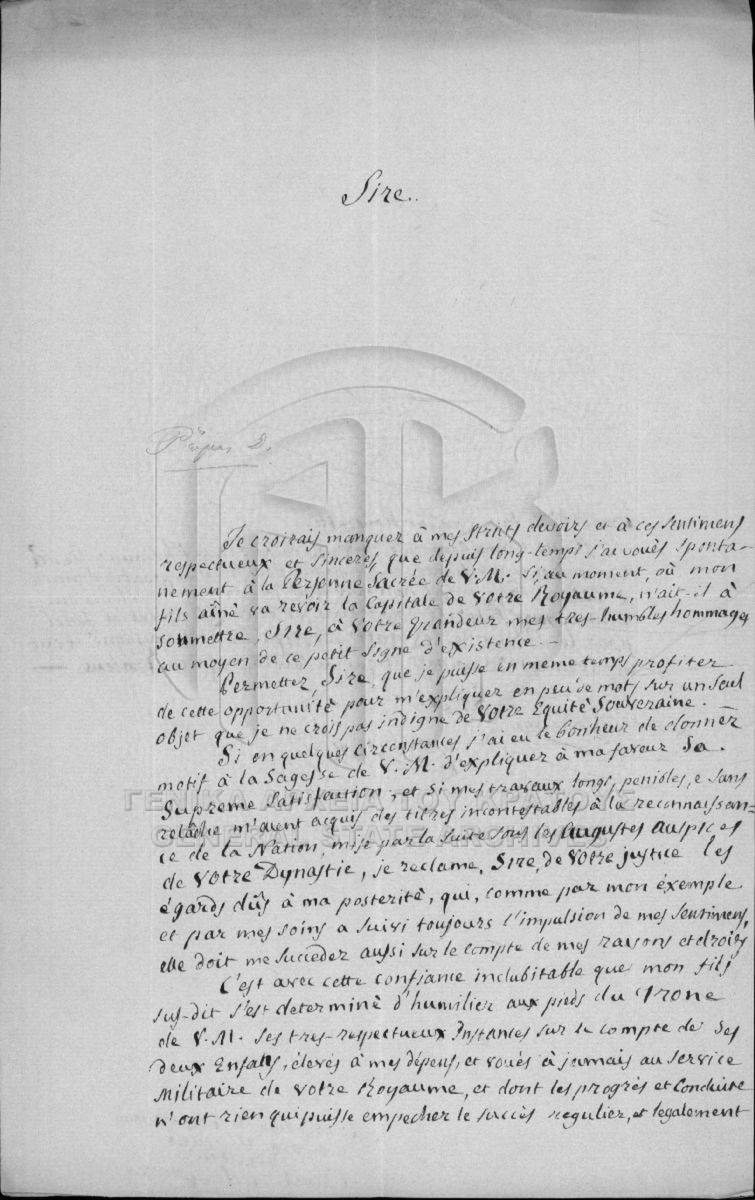 Sire.
Je croirais manquer à mes stricts devoirs et à ces sentimens
respectueux et sinceres, que depuis long-temps j'ai voués sponta-
nement à la Personne Sacrée de V. M. si, au moment, où mon
fils ainé va revoir la Capitale de Votre Royaume, n'ait-il à
soumettre, Sire, à Votre Grandeur mes tres-humbles hommages
au moyen de ce petit signe d'existence. —
Permettez, Sire, que je puisse en meme temps profiter
de cette opportunité pour m'expliquer en peu de mots sur un seul
objet que je ne crois pas indigne de Votre Equité Souveraine. —
Si en quelques circonstances j'ai eu le bonheur de donner
motif à la Sagesse de V. M. d'expliquer à ma faveur Sa
Supreme Satisfaction, et si mes travaux longs, penibles, e sans
relâche m'aient acquis des titres incontestables à la reconnaissan-
ce de la Nation, mise par la suite sous les Augustes Auspices
de Votre Dynastie, je reclame, Sire, de Votre justice les
égards dûs à ma posterité, qui, comme par mon éxemple
et par mes soins a suivi toujours l'impulsion de mes sentimens,
elle doit me succeder aussi sur le compte de mes raisons et droits
C'est avec cette confiance indubitable que mon fils
sus-dit s'est determiné d'humilier aux pieds du Trone
de V. M. ses tres-respectueux Instances sur le compte de ses
deux Enfans, élevés à mes dépens, et voués à jamais au service
Militaire de Votre Royaume, et dont les progrès et Conduite
n'ont rien qui puisse empecher le succès regulier, et legalement
ΓΕΝΙΚΑ ΑΡΧΕΙΑ ΤΟΥ ΚΡΑΤΟΥΣ
GENERAL STATE ARCHIVES